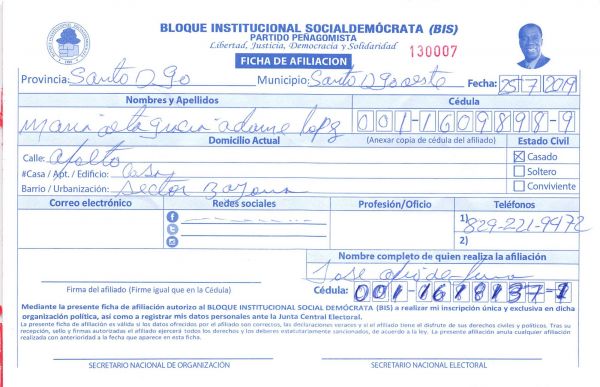 BLOQUE INSTITUCIONAL SOCIALDEMÓCRATA (BIS)
PARTIDO PEÑAGOMISTA
Libertad, Justicia, Democracia y Solidaridad
130007
FICHA DE AFILIACION
Provincia: Santo Dgo Municipio: Santo Dgo oeste Fecha: 25/7/2019
Nombres y Apellidos Cédula
Maria altagracia adame 001-1609898-9
Domicilio Actual (Anexar copia de cédula del afiliado) Estado Civil
Calle: Casado
#Casa / Apt. / Edificio: Soltero
Barrio / Urbanización: Sector Conviviente
Correo electrónico Redes sociales Profesión/Oficio Teléfonos
1) 829-221-9472
2)
Nombre completo de quien realiza la afiliación
Jose
Firma del afiliado (Firme igual que en la Cédula) Cédula: 001-1618137-1
Mediante la presente ficha de afiliación autorizo al BLOQUE INSTITUCIONAL SOCIAL DEMÓCRATA (BIS) a realizar mi inscripción única y exclusiva en dicha
organización política, así como a registrar mis datos personales ante la Junta Central Electoral.
La presente ficha de afiliación es válida si los datos ofrecidos por el afiliado son correctos, las declaraciones veraces y si el afiliado tiene el disfrute de sus derechos civiles y políticos. Tras su
recepción, sello y firmas autorizadas el afiliado ejercerá todos los derechos y los deberes estatutariamente sancionados, de acuerdo a la ley. La presente afiliación anula cualquier afiliación
realizada con anterioridad a la fecha que aparece en esta ficha.
SECRETARIO NACIONAL DE ORGANIZACIÓN SECRETARIO NACIONAL ELECTORAL